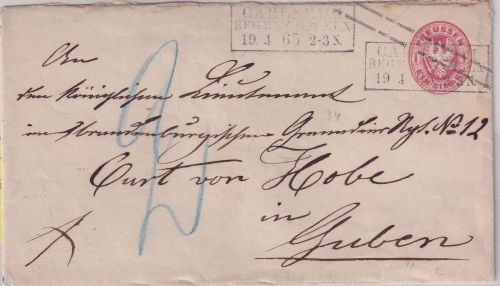 CARLSRUH
REG. BEZ. OPPELN
19 4 65 2-3N.
PREUSSEN
An
den Königlichen Lieutenant
im Brandenburgischen Grenadier Rgt. No 12
Curt von Hobe
in
Guben
2